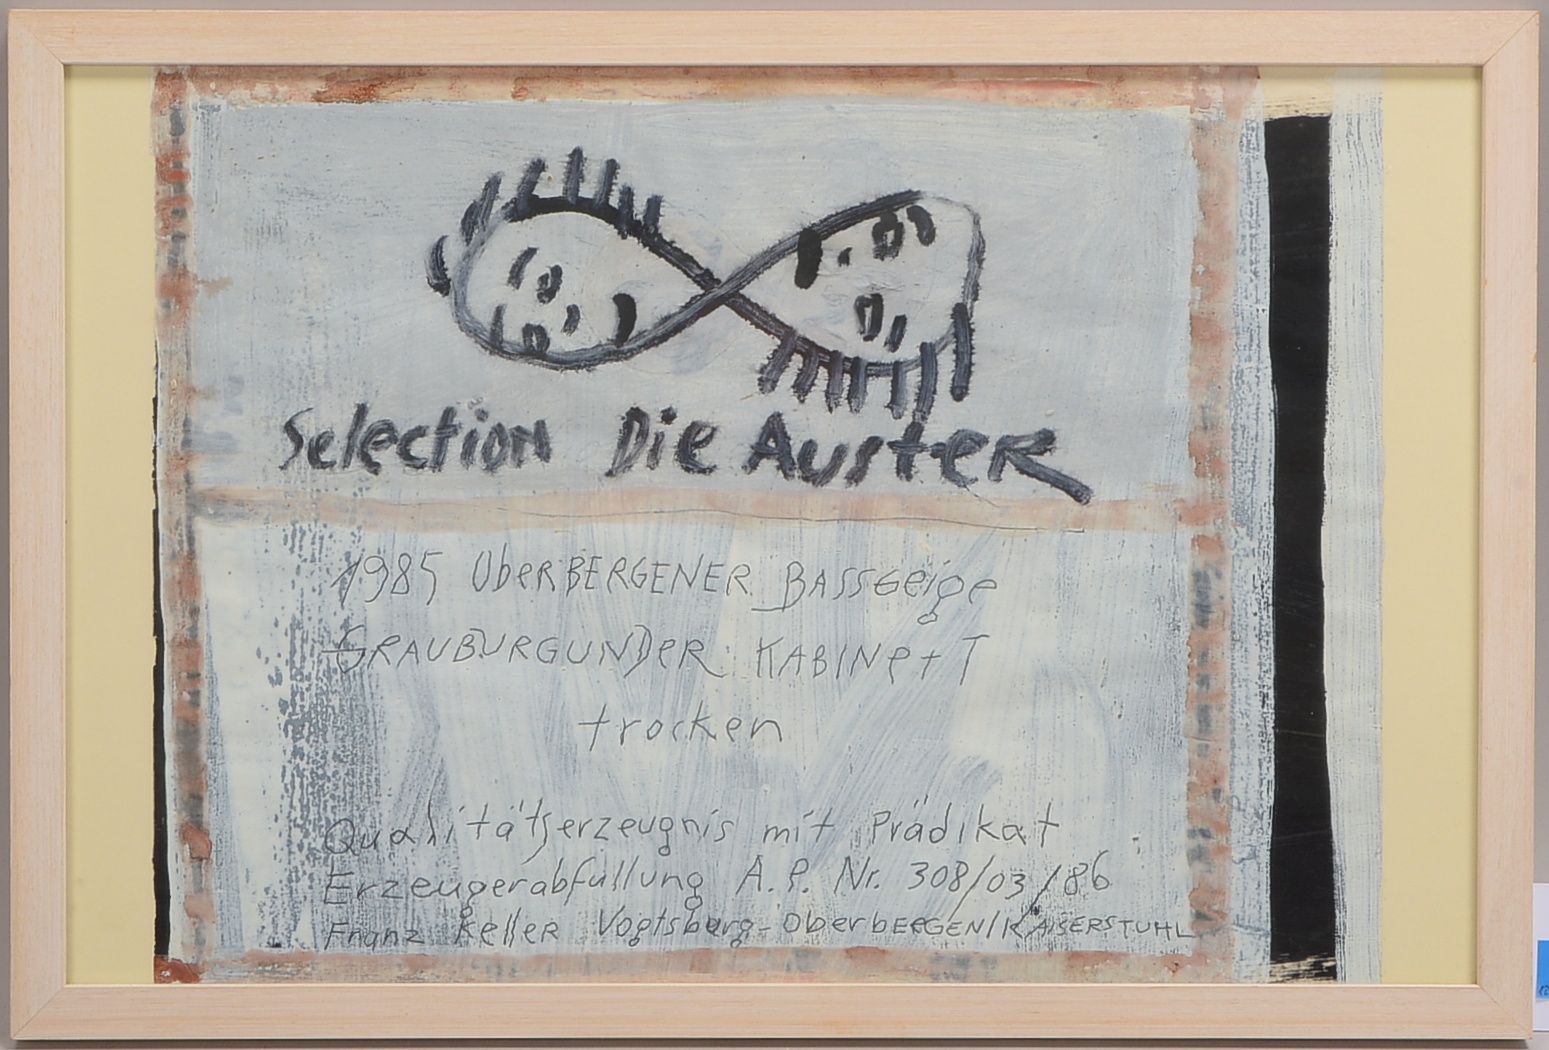 Selection Die Auster
1985 ObERBERGENER BASSGeige
GRAUBURGUNDER KABINetT
trocken
Qualitätserzeugnis mit Prädikat
Erzeugerabfüllung A.P. Nr. 308/03/86
Franz Keller Vogtsburg-OberbERGEN/KAISERSTUHL